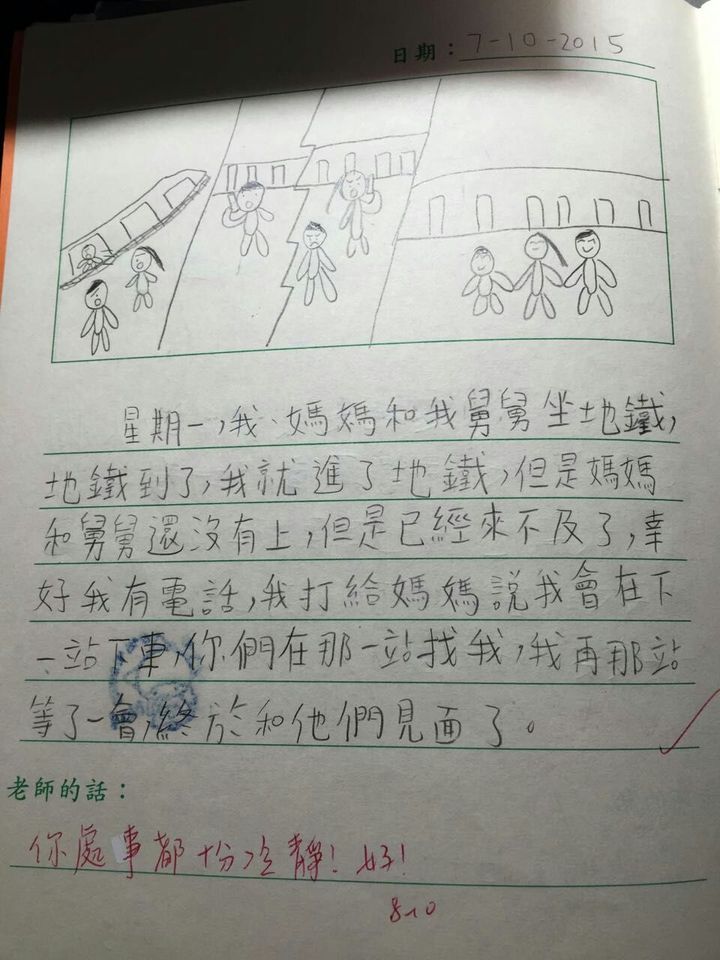 日期：7-10-2015
星期一，我、媽媽和我舅舅坐地鐵，
地鐵到了，我就進了地鐵，但是媽媽
和舅舅還沒有上，但是已經來不及了，幸
好我有電話，我打給媽媽說我會在下
一站下車，你們在那一站找我，我再那站
等了一會，終於和他們見面了。
老師的話：
你處事都十份冷靜！好！
8-10